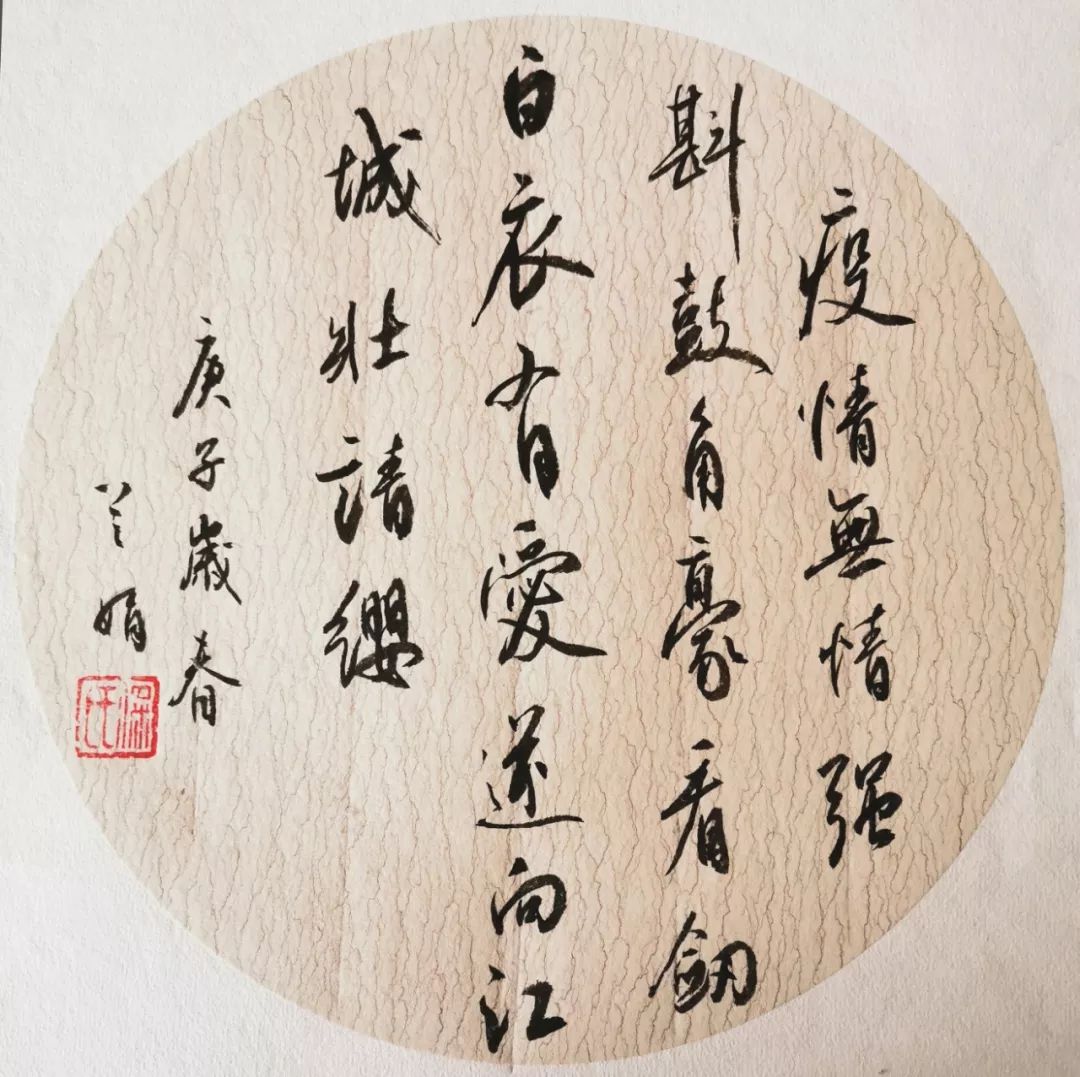 疫情無情强
斟鼓角豪看劒
白衣有愛逆向江
城壯請纓
庚子歲春
兰娟